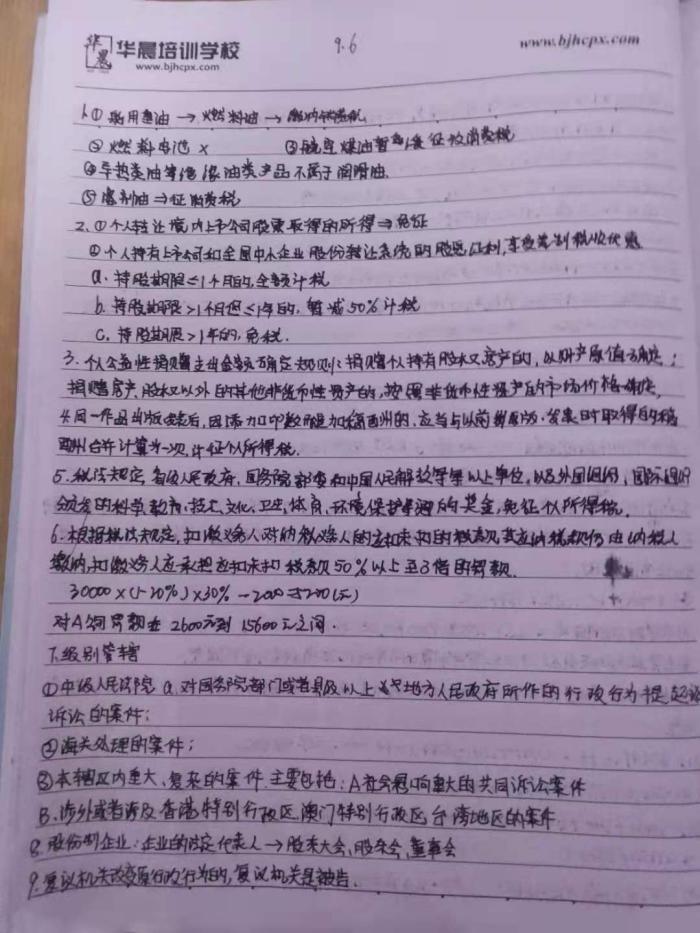 华晨
华晨培训学校
www.bjhcpx.com
9.6
www.bjhcpx.com
1.① 船用重油 → 燃料油 →
② 燃料电池 × ③航空煤油暂缓征收消费税
④导热类油等绝缘油类产品不属于润滑油.
⑤溶剂油⇒征消费税
2.①个人转让境内上市公司股票取得的所得⇒免征
②个人持有上市公司和全国中小企业股份转让系统的股息红利,享受差别税收优惠
a.持股期限≤1个月的,全额计税
b.持股期限>1个月但≤1年的,暂减50%计税
c.持股期限>1年的,免税.
3.个人公益性捐赠支出金额确定规则:捐赠个人持有股权又房产的,以财产原值确定;
捐赠房产、股权又以外的其他非货币性资产的,按照非货币性资产的市场价格确定.
4.同一作品出版、发表后,因添加印数而追加稿酬的,应当与以前出版、发表时取得的稿
酬合并计算为一次,计征个人所得税.
5.税法规定,省级人民政府,国务院部委和中国人民解放军军以上单位,以及外国组织,国际组织
颁发的科学、教育、技术、文化、卫生、体育、环境保护等方面的奖金,免征个人所得税.
6.根据税法规定,扣缴义务人对纳税义务人的应扣未扣的税款,其应纳税款仍由纳税人
缴纳,扣缴义务人应承担应扣未扣税款50%以上至3倍的罚款.
30000×(1-20%)×30%-2000=5200(元)
对A的罚款在2600元到15600元之间.
7.级别管辖
①中级人民法院 a.对国务院部门或者县级以上地方人民政府所作的行政行为提起
诉讼的案件;
②海关处理的案件;
③本辖区内重大、复杂的案件.主要包括:A社会影响重大的共同诉讼案件
B.涉外或者涉及香港特别行政区、澳门特别行政区、台湾地区的案件
8.股份制企业:企业的法定代表人→股东大会、股东会、董事会
9.复议机关改变原行政行为的,复议机关是被告.